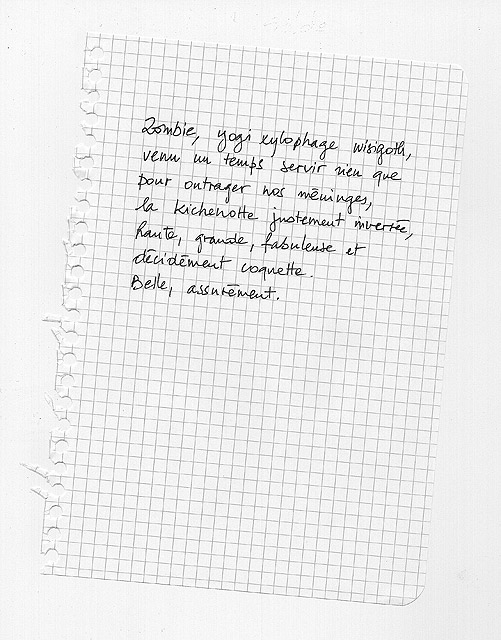 Zombie, yogi xylophage wisigoth,
venu un temps servir rien que
pour outrager nos méninges,
la kichenotte justement invertée,
haute, grande, fabuleuse et
décidément coquette.
Belle, assurément.